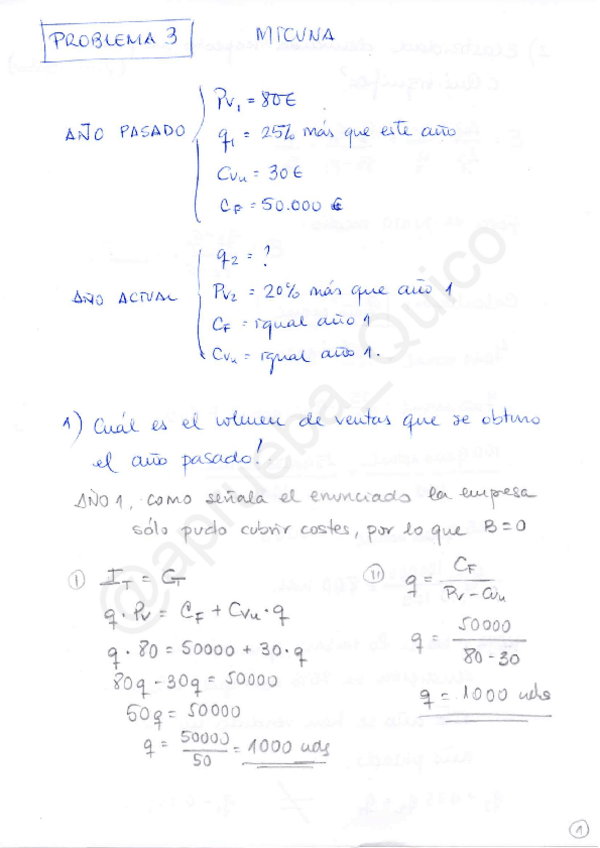 PROBLEMA 3
MICUNA
AÑO PASADO
Pv₁ = 80€
q₁ = 25% más que este año
Cvu = 30€
CF = 50.000 €
AÑO ACTUAL
q₂ = ?
Pv₂ = 20% más que año 1
CF = igual año 1
Cvu = igual año 1.
1) Cuál es el volumen de ventas que se obtuvo
el año pasado!
AÑO 1, como señala el enunciado la empresa
sólo pudo cubrir costes, por lo que B=0
I) IT = CT
q · Pv = CF + Cvu · q
q · 80 = 50000 + 30 · q
80q - 30q = 50000
50q = 50000
q = 50000/50 = 1000 uds
II) q = CF/(Pv - Cvu)
q = 50000/(80 - 30)
q = 1000 uds
@aprueba_Quico
1